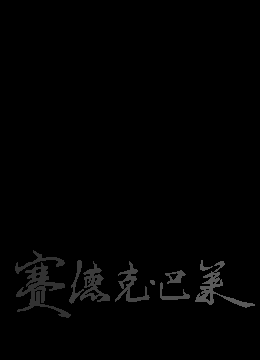 賽德克·巴萊